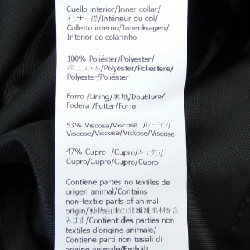 Cuello interior/Inner collar/
インナー襟/Intérieur du col/
Colletto interno/Innenkragen/
Interior do colarinho
100% Poliéster/Polyester/
ポリエステル/Polyester/Poliestere/
Polyester/Poliéster
Forro /Lining/裏地/Doublure/
Fodera /Futter/Forro
53% Viscosa/Viscose/レーヨン/
Viscose/Viscosa/Viscose/Viscose
47% Cupro /Cupro/キュプラ/
Cupro/Cupro/Cupro/Cupro
Contiene partes no textiles de
origen animal/Contains
non-textile parts of animal
origin/動物由来の非繊維素材を含
みます/Contient des parties non
textiles d'origine animale/
Contiene parti non tessili di
origine animale/Enthält